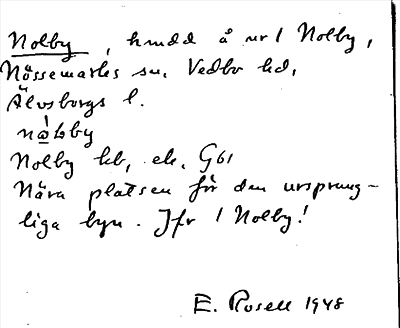 Nolby, hmdd å nr 1 Nolby,
Nössemarks sn. Vedbo hd,
Älvsborgs l.
nå̀lby
Nolby kb, ek. G61
Nära platsen för den ursprung-
liga byn. Jfr 1 Nolby!
E. Rosell 1948